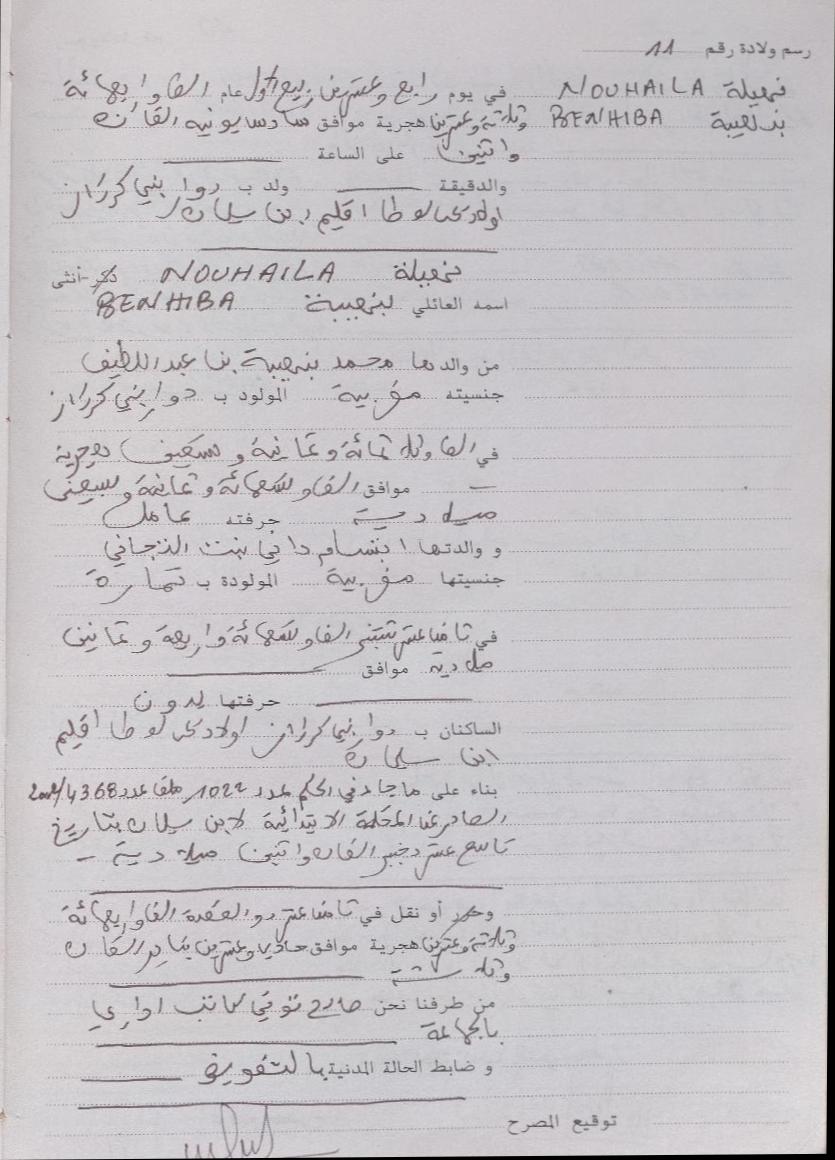 رسم ولادة رقم 11
نهيلة NOUHAILA في يوم رابع وعشرين ربيع الأول عام ألف وأربعمائة
بنهيبة BENHIBA وثلاثة وعشرين هجرية موافق سادس يونيه ألفان
واثنين على الساعة
والدقيقة ولد ب دوار بني كرزاز
أولاد يحيى لوطا اقليم ابن سليمان
نهيلة NOUHAILA ذكر - أنثى
اسمه العائلي بنهيبة BENHIBA
من والدها محمد بنهيبة بن عبد اللطيف
جنسيته مغربية المولود ب دوار بني كرزاز
في ألف وثلاثمائة وثمانية وتسعين هجرية
موافق ألف وتسعمائة وثمانية وسبعين
ميلادية حرفته عامل
و والدتها ابتسام بنت التجاني
جنسيتها مغربية المولودة ب تمارة
في ثامن عشر شتنبر ألف وتسعمائة وأربعة وثمانين
ميلادية موافق
حرفتها بدون
الساكنان ب دوار بني كرزاز أولاد يحيى لوطا اقليم
ابن سليمان
بناء على ما جاء في الحكم عدد 1022 ملف عدد 4368/2002
الصادر عن المحكمة الابتدائية لابن سليمان بتاريخ
تاسع عشر دجنبر ألفان واثنين ميلادية
وحرر أو نقل في ثامن عشر ذو القعدة ألف وأربعمائة
وثلاثة وعشرين هجرية موافق حادي وعشرين يناير ألفان
وثلاثة
من طرفنا نحن كاتب اداري
بالجماعة
و ضابط الحالة المدنية بالتفويض
توقيع المصرح